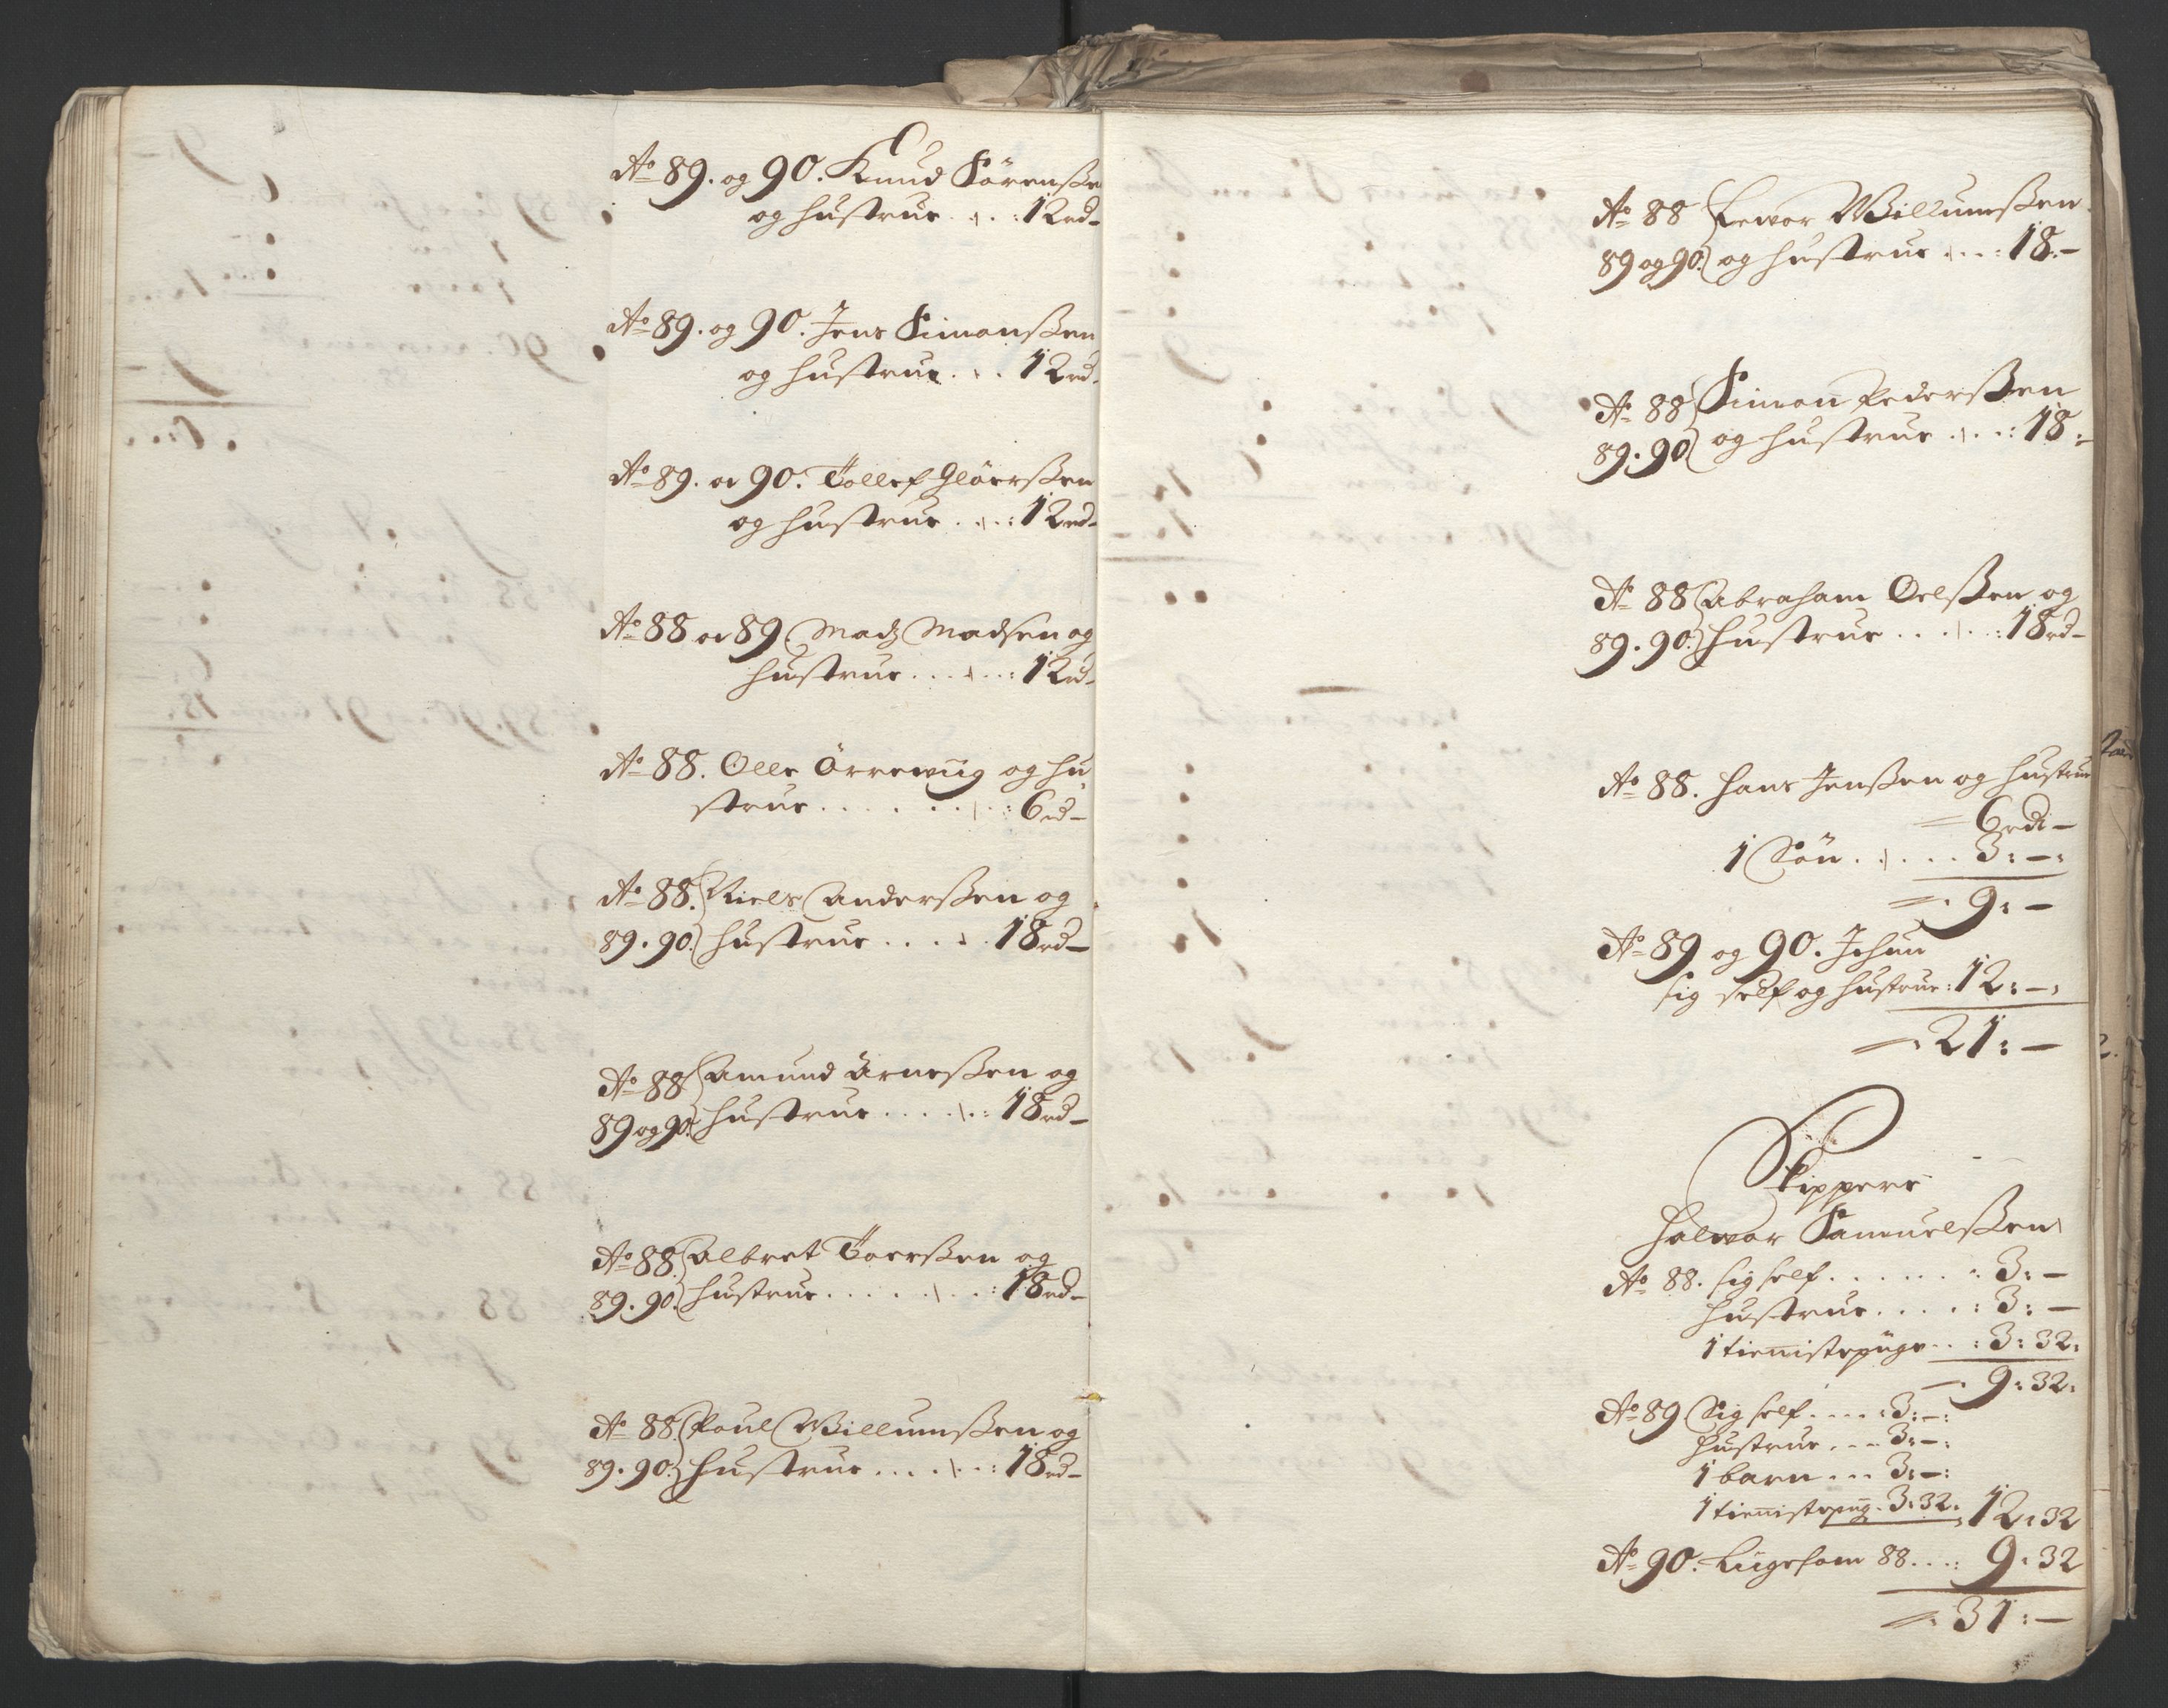 Ao 89. og 90. Knud Sörenßen
og hustrue . . . : 12 rd -
Ao 89. og 90. Jens Simonßen
og hustrue . . . 12 rd.
Ao 89. oc 90. Tollef Glöerßen
og hustrue . . . : 12 rd -
Ao 88 oc 89 Madz Madsen og
hustrue . . . . . : 12 rd -
Ao 88. Olle Örrewiig og hu
strue . . . . . . . : 6 rd -
Ao 88. Niels Anderßen og
89. 90. hustrue . . . . . 18 rd -
Ao 88 Amund Arneßen og
89 og 90. hustrue . . . . . : 18 rd -
Ao 88. Albret Toerßen og
89. 90. hustrue . . . . . . . : 18 rd -
Ao 88. Poul Willumßen og
89. 90. hustrue . . . . . . : 18 rd -
Ao 88 Willumßen
89 og 90. og hustrue . . . : 18. -
Ao 88 Simon Pederßen
89. 90 og hustrue . . . : 18: -
Ao 88 Abraham Oelßen og
89. 90. hustrue . . . . . : 18 rd -
Ao 88. Hans Jenßen og hustrue
= 6 rdr -
1 Sön . . . . . 3: - :
= . 9: -
Ao 89 og 90. Ichun
sig self og hustrue : 12: - :
= . 21: -
Skippere
Halwor Samuelßen
Ao 88. sig self . . . . . . : 3: -
hustrue . . . . : 3: -
1 tienistepiige . . : 3: 32:
- . 9: 32:
Ao 89 Sig self . . . . : 3: - :
hustrue . . . 3: - :
1 barn . . . 3: - :
1 tienistepiig . 3: 32: 12: 32
Ao 90. Liigesom 88 . . . : 9: 32
= : 31: -